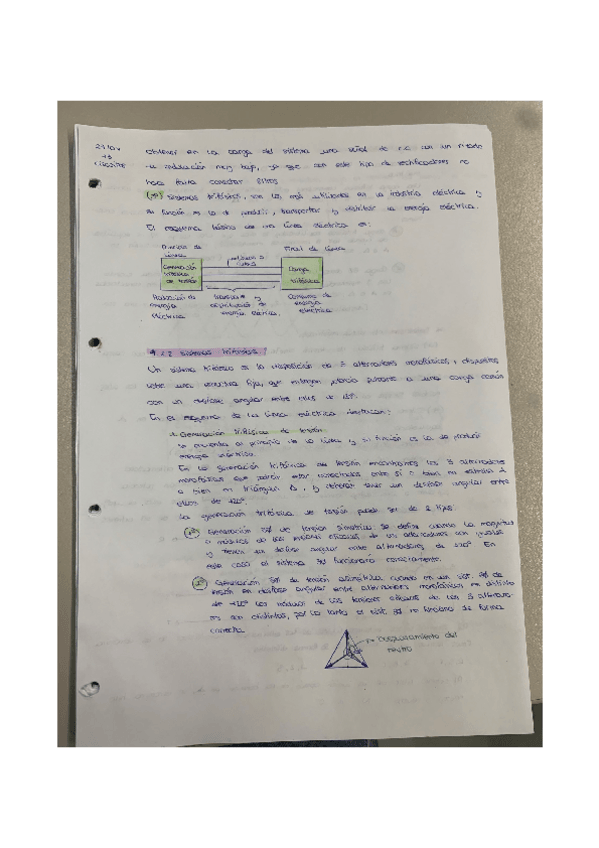 obtener en la carga del sistema una señal de c.c con un
muy bajo, ya que con este tipo de rectificadores no
hace falta conectar filtros
sistemas trifásicos, son los más utilizados en la industria eléctrica y
su función es la de producir, transportar y distribuir la energía eléctrica.
El esquema básico de una línea eléctrica es:
Principio de línea
Final de línea
Generación trifásica de tensión
Carga trifásica
Producción de energía eléctrica
y distribución de energía eléctrica.
Consumo de energía eléctrica
1.2 Sistemas trifásicos
Un sistema trifásico es la disposición de 3 alternadores monofásicos, dispuestos
sobre una fija, que entregan potencia a una carga común
con un desfase angular entre ellos de 120°.
En el esquema de la línea eléctrica destacan:
Generación trifásica de tensión
se encuentra al principio de la línea y su función es la de producir
energía eléctrica.
En la generación trifásica de tensión encontramos los 3 alternadores
monofásicos que podrán estar conectados entre sí o bien en estrella
o bien en triángulo Δ, y deberán tener un desfase angular entre
ellos de 120°.
La generación trifásica de tensión puede ser de 2 tipos:
1º Generación 3ϕ de tensión simétrica se define cuando la magnitud
o módulos de los tensiones eficaces de los alternadores son iguales
y tienen un desfase angular entre alternadores de 120°. En
este caso el sistema 3ϕ funcionará correctamente.
2º Generación 3ϕ de tensión asimétrica cuando en un sist. 3ϕ de
tensión en desfase angular entre alternadores monofásicos es distinto
de 120° los módulos de las tensiones eficaces de los 3
son distintos, por lo tanto el sist. 3ϕ no funciona de forma
correcta.
Desplazamiento del
neutro